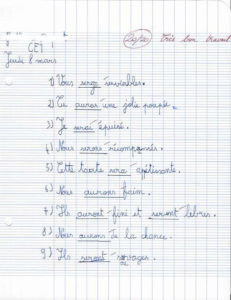 CE1
Très bon travail
Jeudi 8 mars
1) Vous serez serviables.
2) Tu auras une jolie poupée.
3) Je serai épuisé.
4) Nous serons récompensés.
5) Cette tarte sera appétissante.
6) Nous aurons faim.
7) Ils auront fini et seront libres.
8) Nous aurons de la chance.
9) Ils seront sauvages.